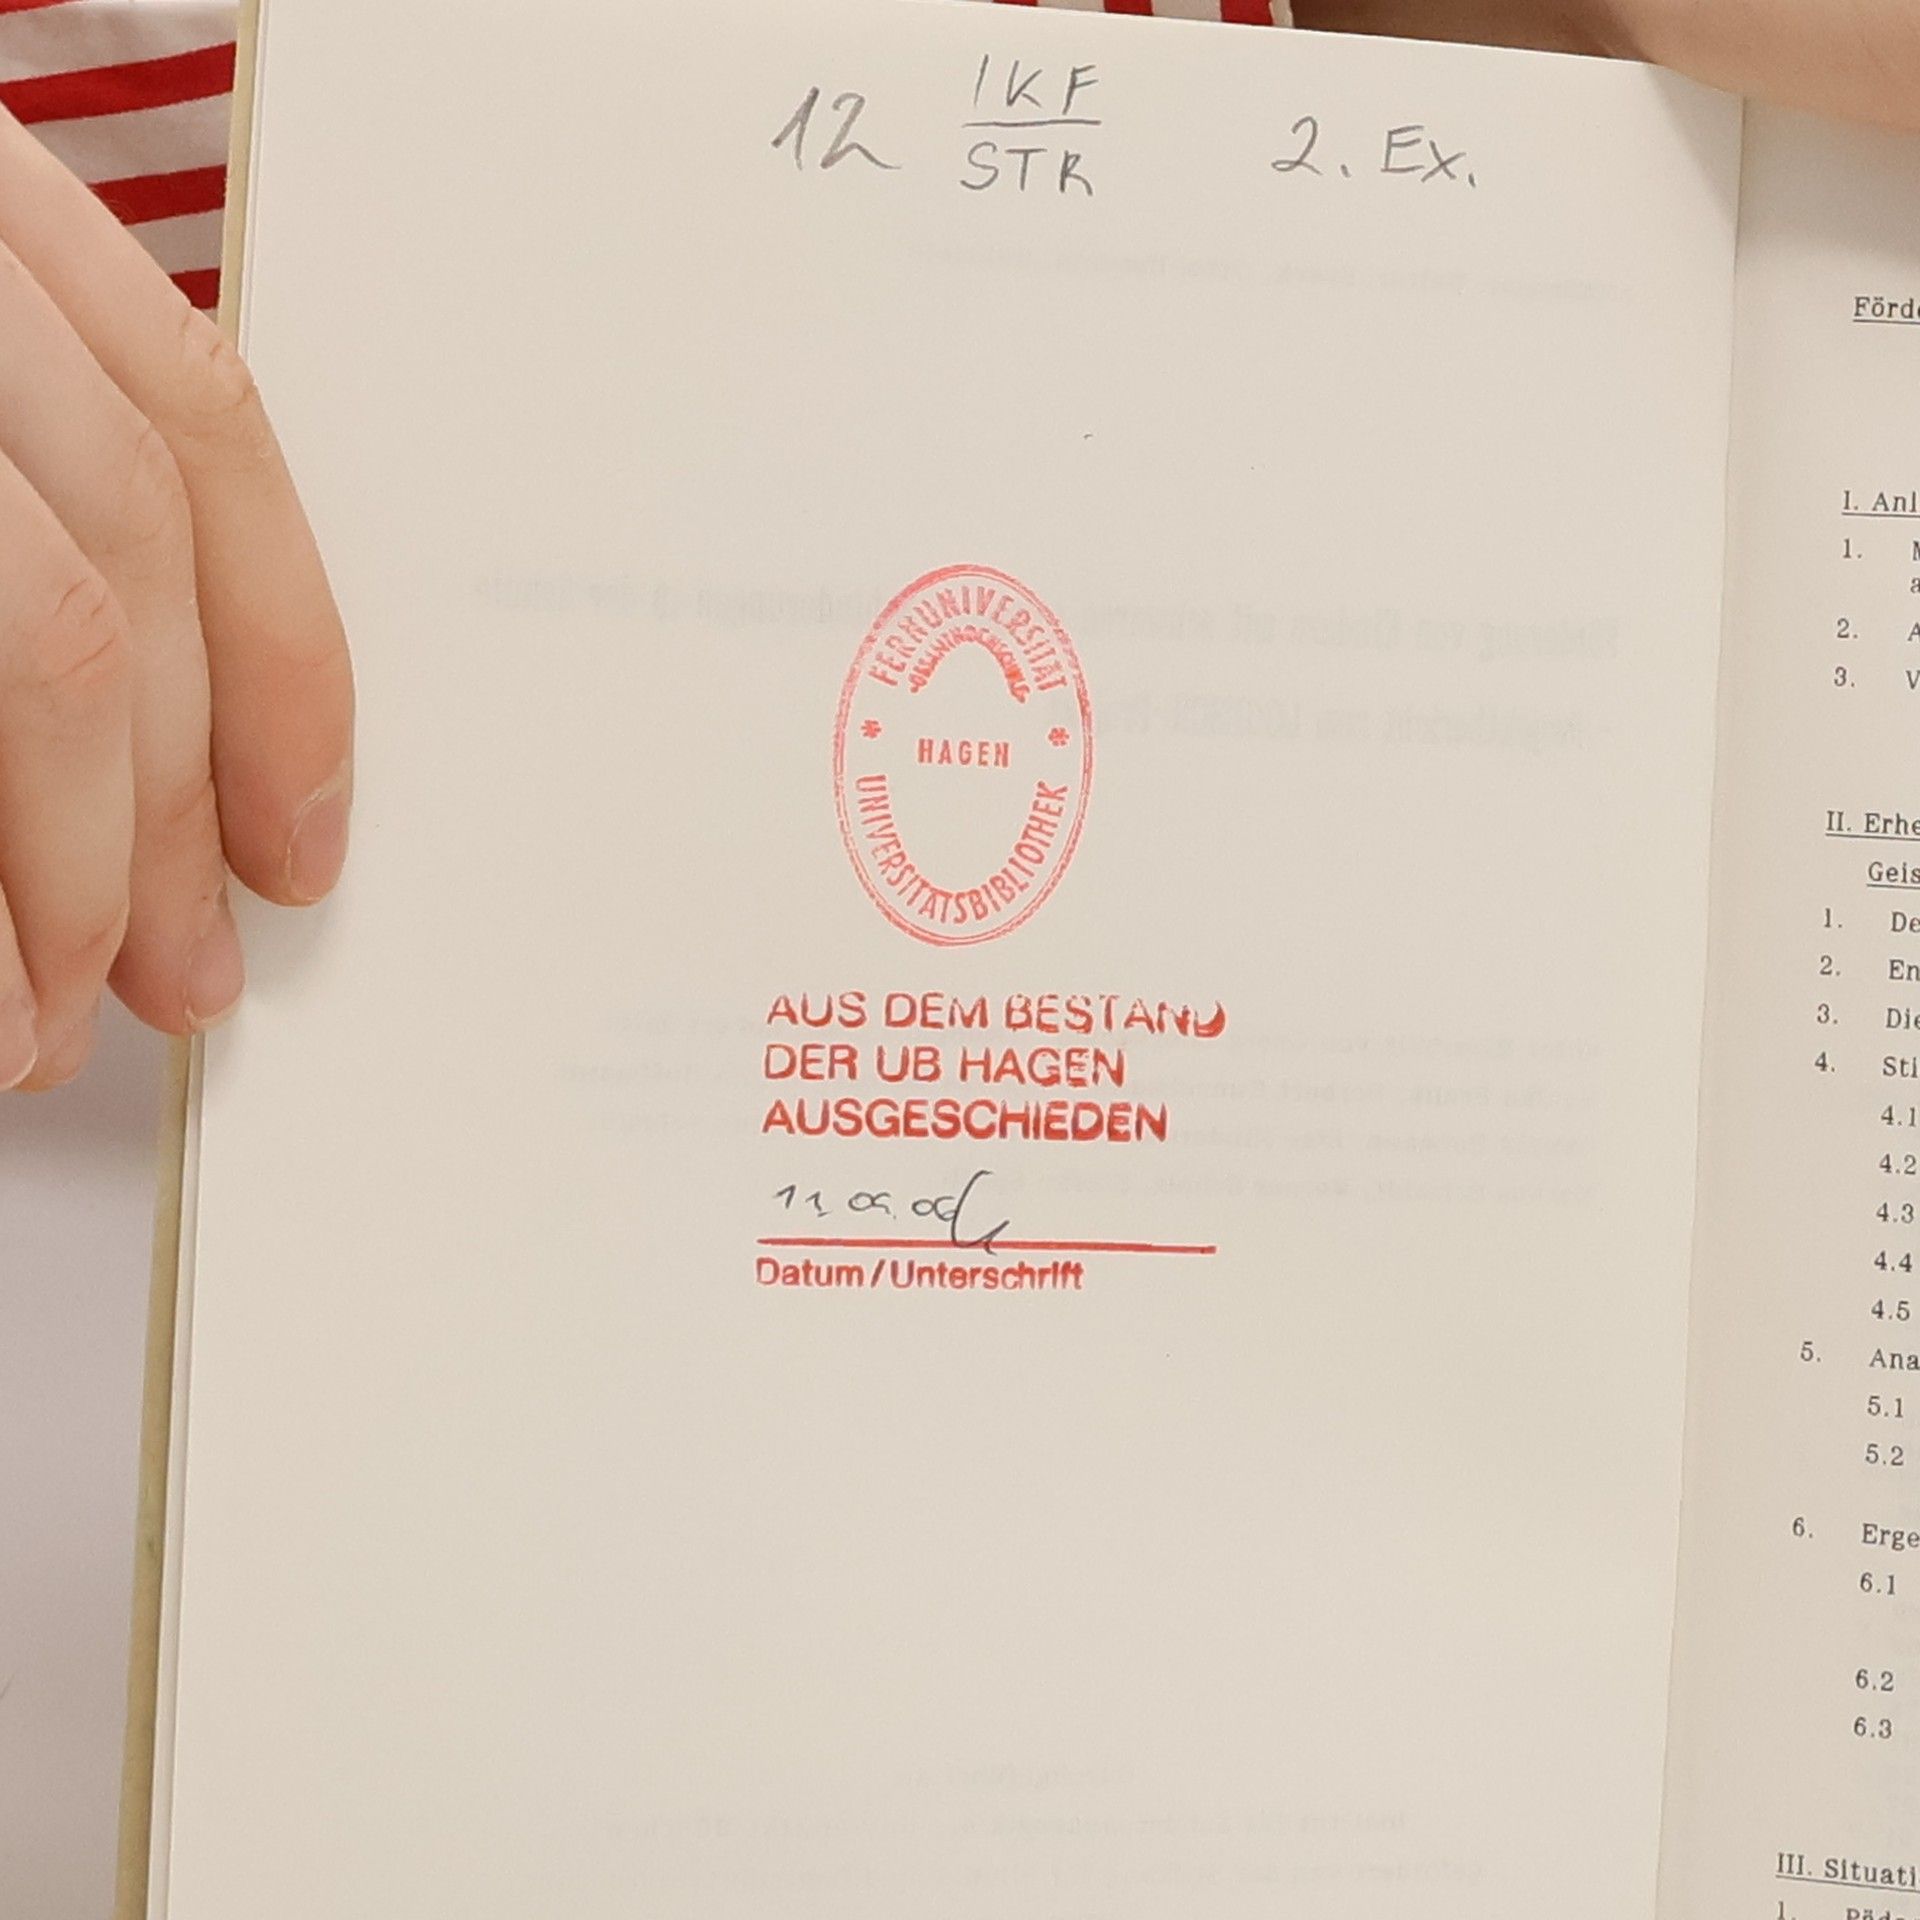 12 IKF 2. Ex.
STR
FERNUNIVERSITÄT
-GESAMTHOCHSCHULE-
* HAGEN *
UNIVERSITÄTSBIBLIOTHEK
AUS DEM BESTAND
DER UB HAGEN
AUSGESCHIEDEN
Datum/Unterschrift
Förde
I. Anl
1. M
a
2. A
3. V
II. Erhe
Geis
1. De
2. En
3. Die
4. Sti
4.1
4.2
4.3
4.4
4.5
5. Ana
5.1
5.2
6. Erge
6.1
6.2
6.3
III. Situati
1. Päda